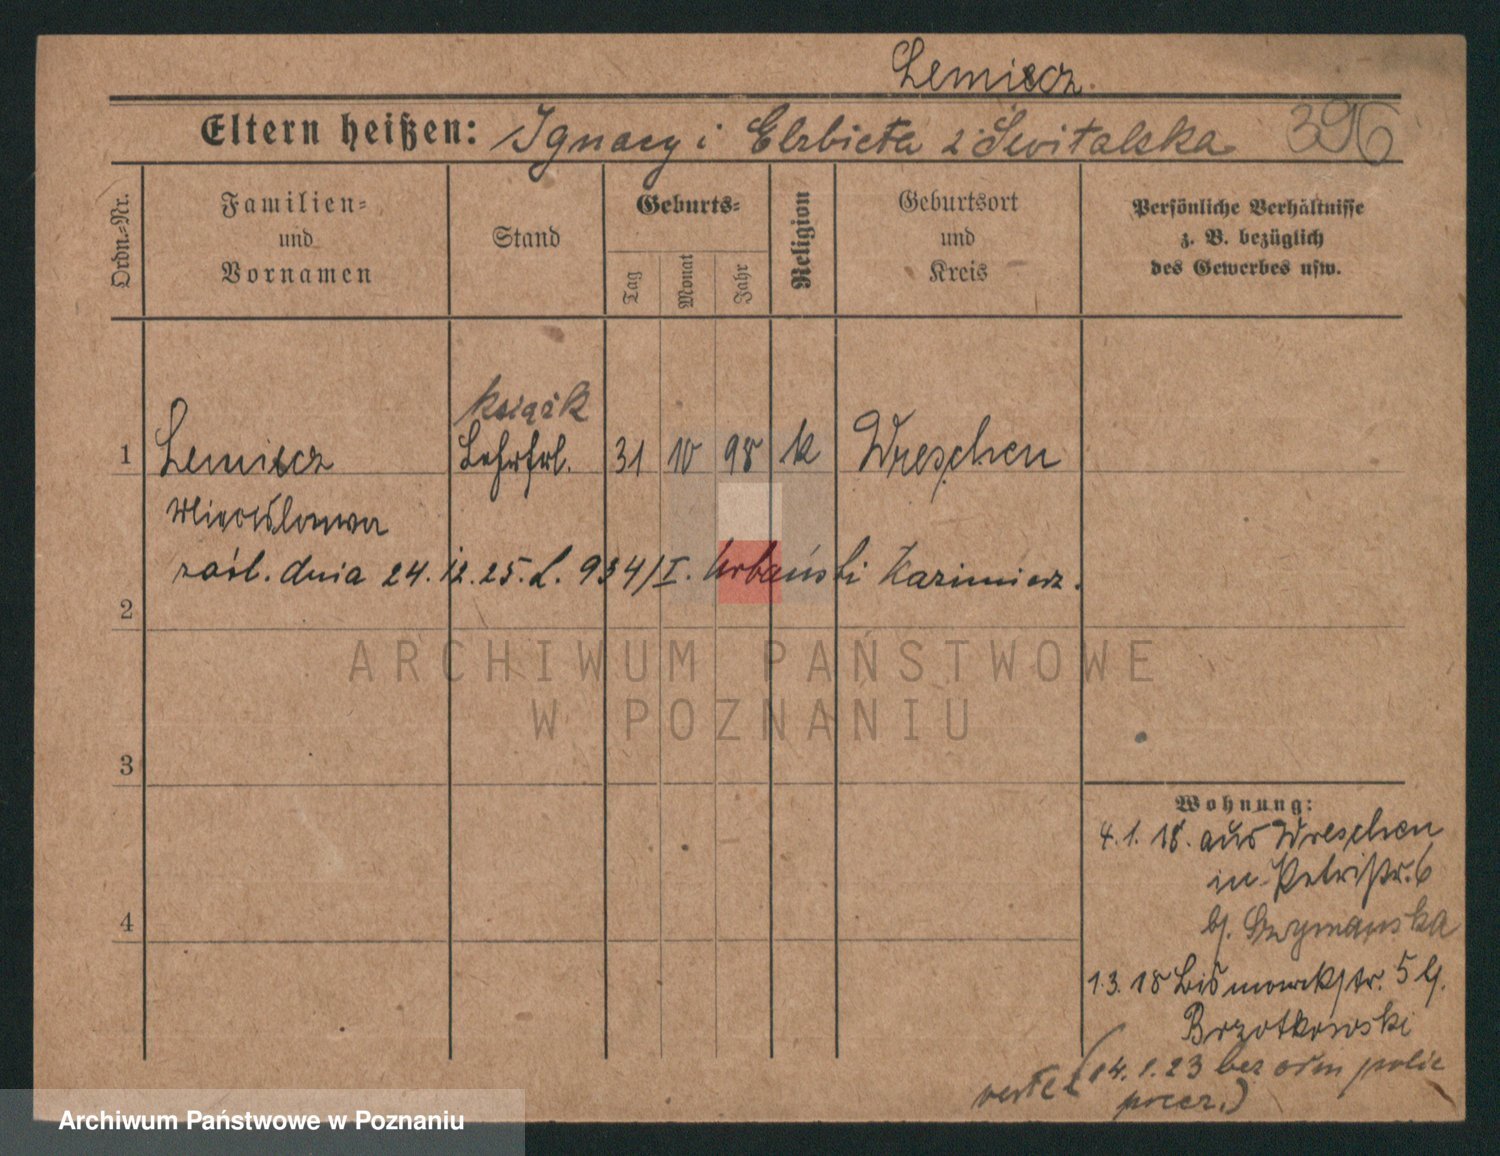 Lemiecz.
Eltern heißen: Ignacy i Elzbieta z Switalska 396
Ordn.-Nr.
Familien-
und
Vornamen
Stand
Geburts-
Tag
Monat
Jahr
Religion
Geburtsort
und
Kreis
Persönliche Verhältnisse
z. B. bezüglich
des Gewerbes usw.
książk
1 Lemiecz Lehrfrl. 31 10 98 k Wreschen
Mirosława
zaśl. dnia 24.12.25. L. 934/I. Urbański Kazimierz.
2
ARCHIWUM PAŃSTWOWE
W POZNANIU
3
4
Wohnung:
4.1.18. aus Wreschen
in Petristr. 6
bj. Szymańska
1.3.18 Bismarckstr. 5 bj.
Brzotkowski
(14.1.23 bez odm polic
Archiwum Państwowe w Poznaniu